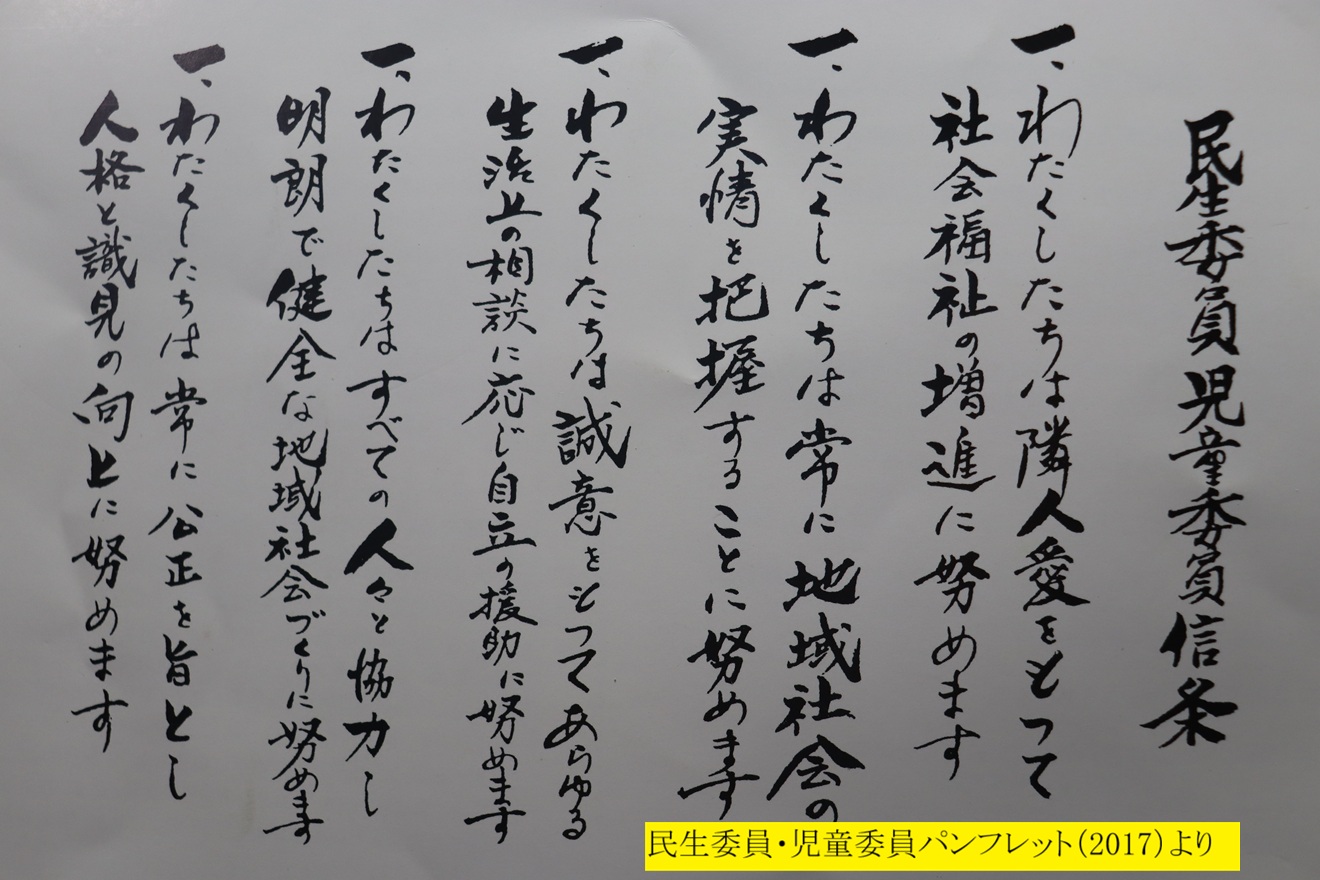 民生委員児童委員信条
一、わたくしたちは隣人愛をもって
社会福祉の増進に努めます
一、わたくしたちは常に地域社会の
実情を把握することに努めます
一、わたくしたちは誠意をもってあらゆる
生活上の相談に応じ自立の援助に努めます
一、わたくしたちはすべての人々と協力し
明朗で健全な地域社会づくりに努めます
一、わたくしたちは常に公正を旨とし
人格と識見の向上に努めます
民生委員・児童委員パンフレット(2017)より